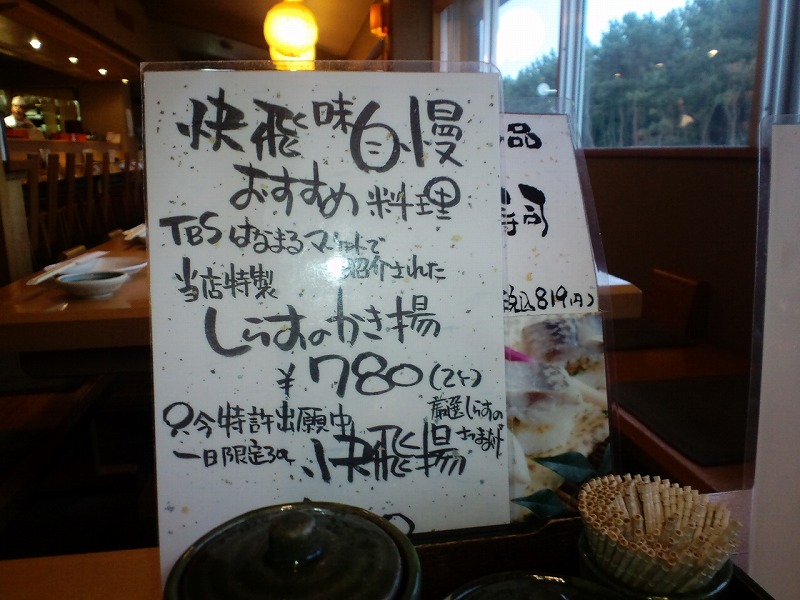 快飛味自慢
おすすめ料理
TBSはなまるマーケットで
紹介された
当店特製
しらすのかき揚
¥780(2ケ)
只今特許出願中
厳選しらすの
さつまあげ
一日限定30ヶ
快飛揚
品
寿司
税込819円